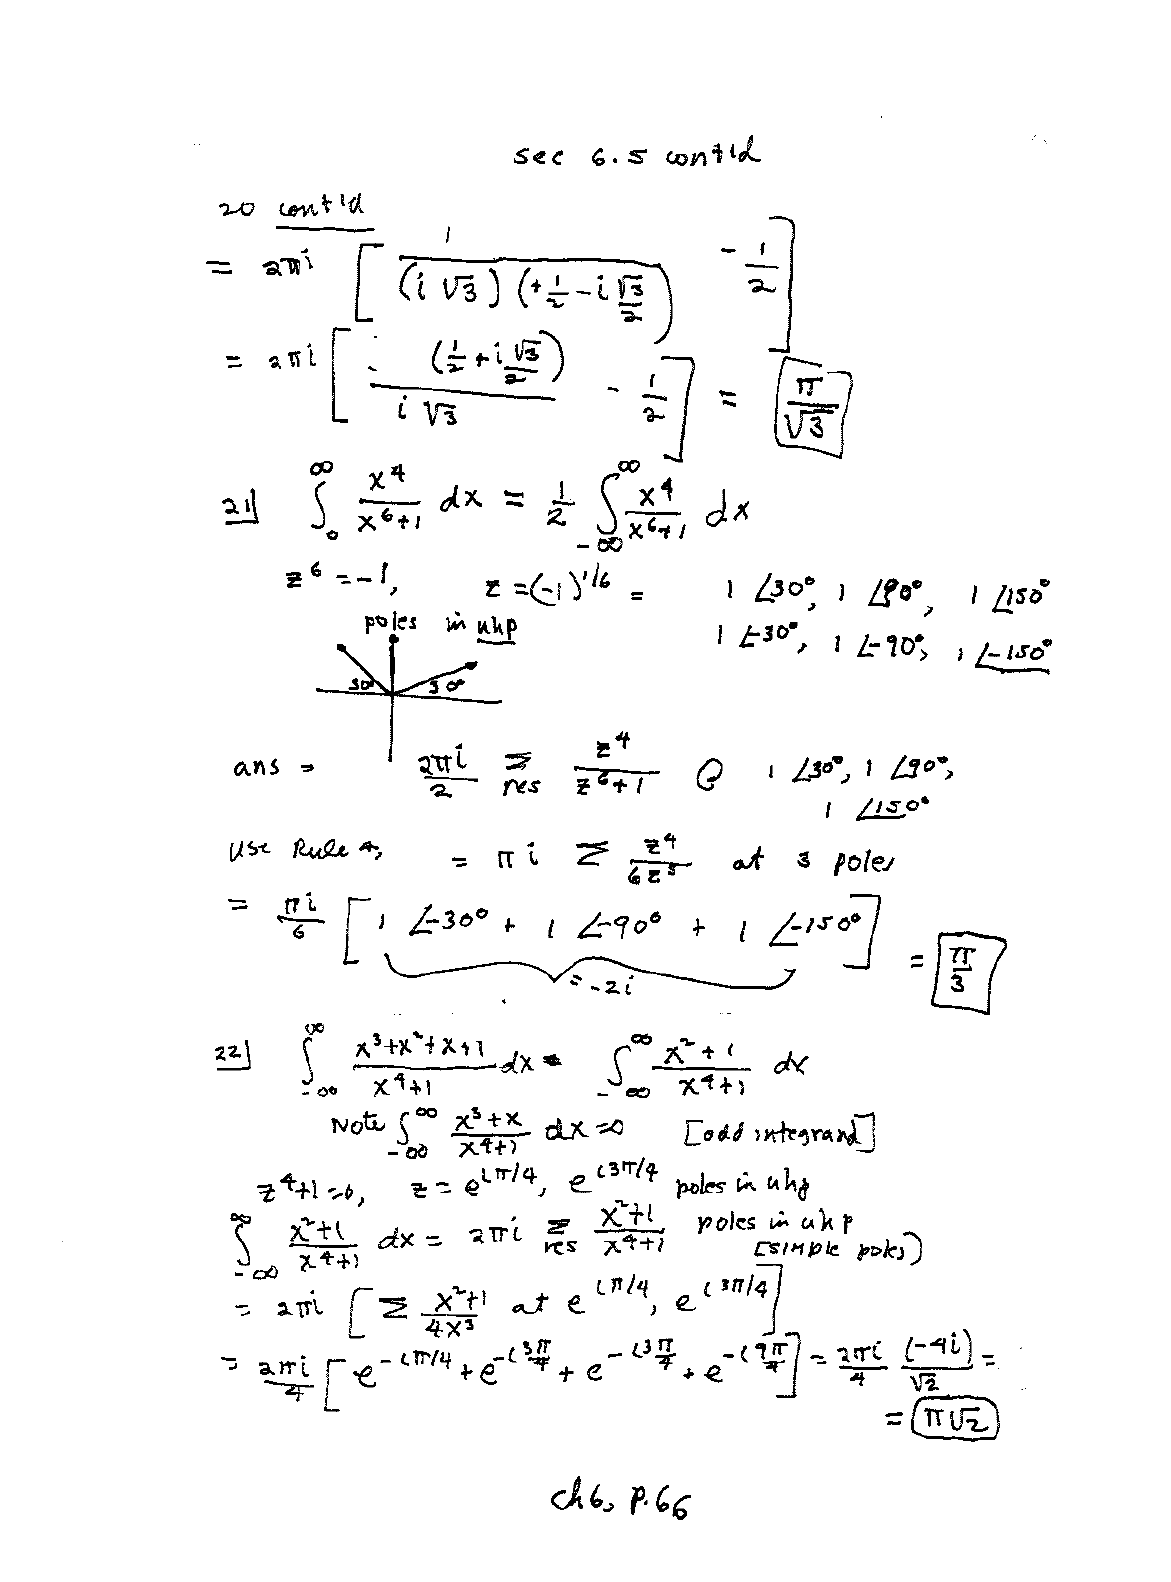 sec 6.5 cont'd
20 cont'd
= 2πi [ 1 / ((i √3) (+1/2 - i √3/2)) - 1/2 ]
= 2πi [ (1/2 + i √3/2) / (i √3) - 1/2 ] = π/√3
21] ∫_0^∞ x^4/(x^6+1) dx = 1/2 ∫_{-∞}^∞ x^4/(x^6+1) dx
z^6 = -1, z = (-1)^{1/6} = 1 ∠30°, 1 ∠90°, 1 ∠150°
1 ∠-30°, 1 ∠-90°, 1 ∠-150°
poles in uhp
30° 30°
ans = 2πi/2 Σ res z^4/(z^6+1) @ 1 ∠30°, 1 ∠90°,
1 ∠150°
Use Rule 4, = πi Σ z^4/(6z^5) at 3 poles
= πi/6 [ 1 ∠-30° + 1 ∠-90° + 1 ∠-150° ] = π/3
= -2i
22] ∫_{-∞}^∞ (x^3+x^2+x+1)/(x^4+1) dx = ∫_{-∞}^∞ (x^2+1)/(x^4+1) dx
Note ∫_{-∞}^∞ (x^3+x)/(x^4+1) dx = 0 [odd integrand]
z^4+1=0, z = e^{iπ/4}, e^{i3π/4} poles in uhp
∫_{-∞}^∞ (x^2+1)/(x^4+1) dx = 2πi Σ res (x^2+1)/(x^4+1) poles in uhp
[simple poles)
= 2πi [ Σ (x^2+1)/(4x^3) at e^{iπ/4}, e^{i3π/4} ]
= 2πi/4 [ e^{-iπ/4} + e^{-i3π/4} + e^{-i3π/4} + e^{-i9π/4} ] = 2πi/4 (-4i)/√2 =
= π√2
ch6, p.66